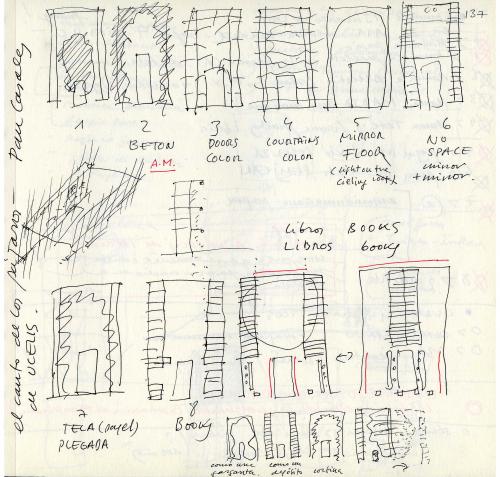 137
1
2
BETON
A.M.
3
DOORS
COLOR
4
COURTAINS
COLOR
5
MIRROR
FLOOR
(light on the
cieling
6
NO
SPACE
mirror
+ mirror.
libros BOOKS
LIBROS books
7
TELA (papel)
PLEGADA
8
BOOKS
como una
garganta.
como un
depósito
cortina
el canto de los pájaros — Pau Casals